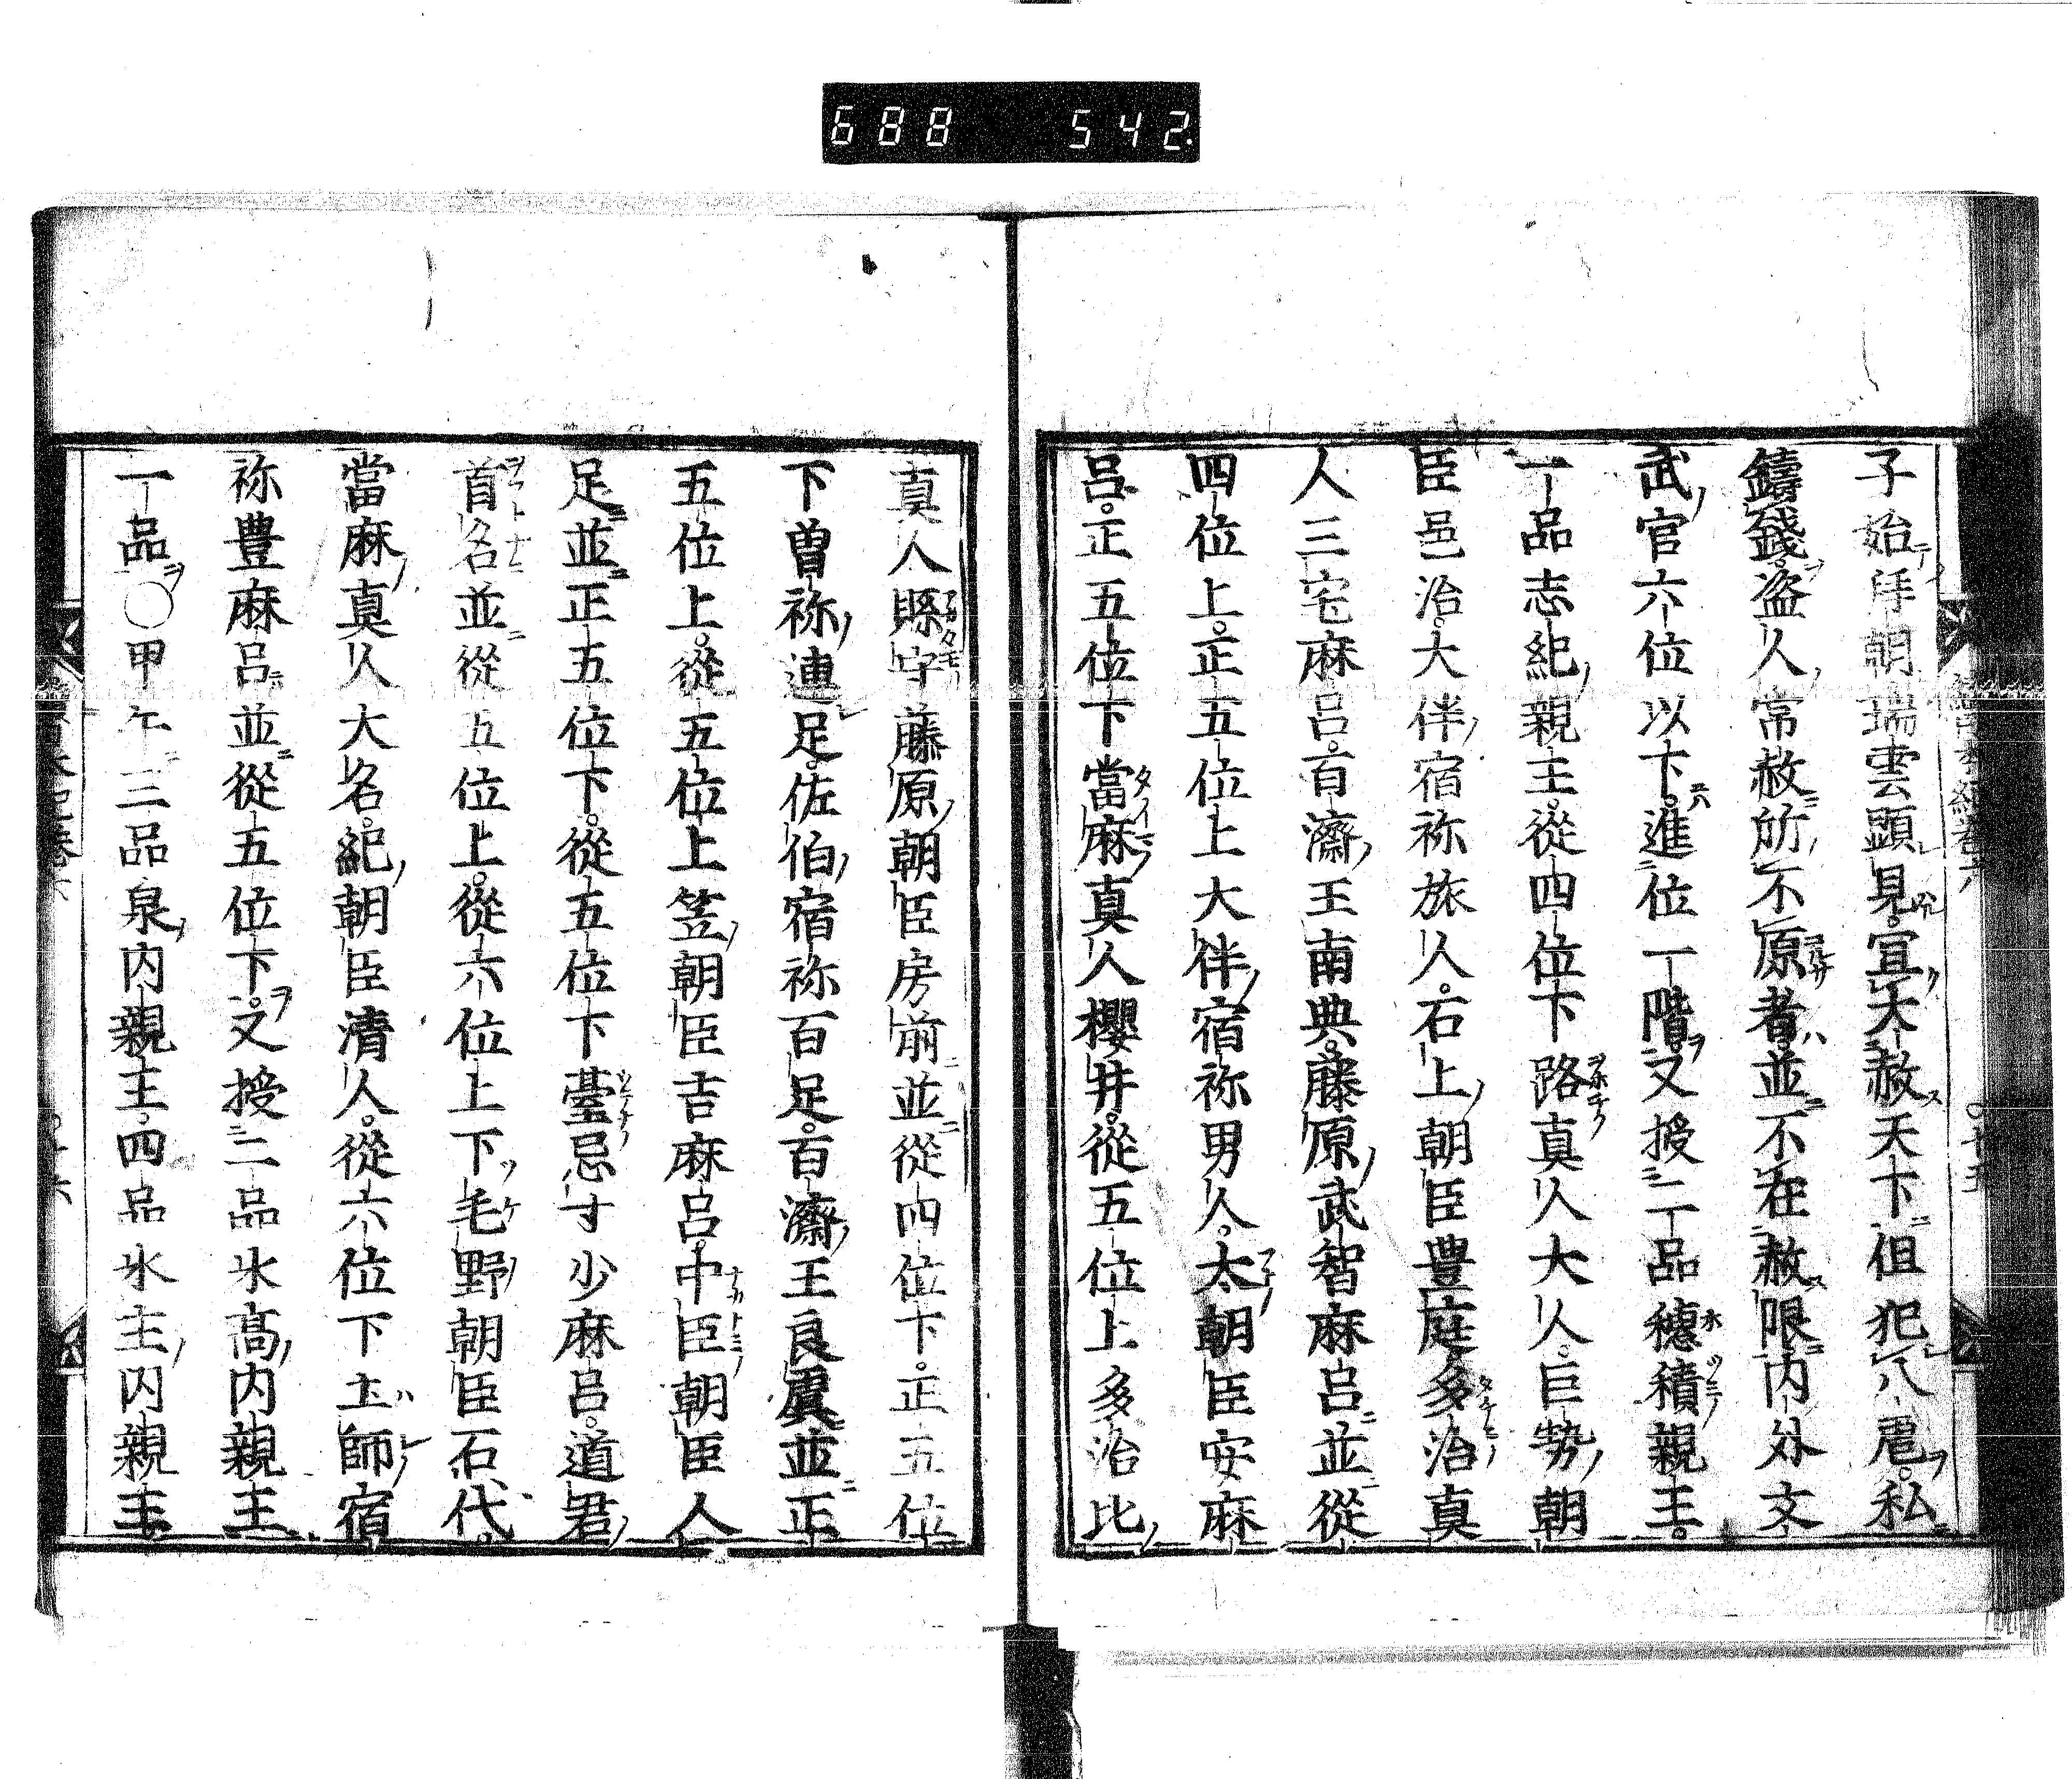 688 542
子始拜朝瑞雲顕見宜大赦天下但犯八虐私
鑄錢盗人常赦所不原者並不在赦限内外文
武官六位以下進位一階又授二品穗積親王
一品志紀親王從四位下路真人大人巨勢朝
臣邑治大伴宿祢旅人石上朝臣豊庭多治真
人三宅麻呂百濟王南典藤原武智麻呂並從
四位上正五位上大伴宿祢男人太朝臣安麻
呂正五位下當麻真人櫻井從五位上多治比
真人縣守藤原朝臣房前並從四位下正五位
下曽祢連足佐伯宿祢百足百濟王良虞並正
五位上從五位上笠朝臣吉麻呂中臣朝臣人
足並正五位下從五位下臺忌寸少麻呂道君
首名並從五位上從六位上下毛野朝臣石代
當麻真人大名紀朝臣清人從六位下土師宿
祢豊麻呂並從五位下又授二品氷高内親王
一品○甲午三品泉内親王四品水主内親王